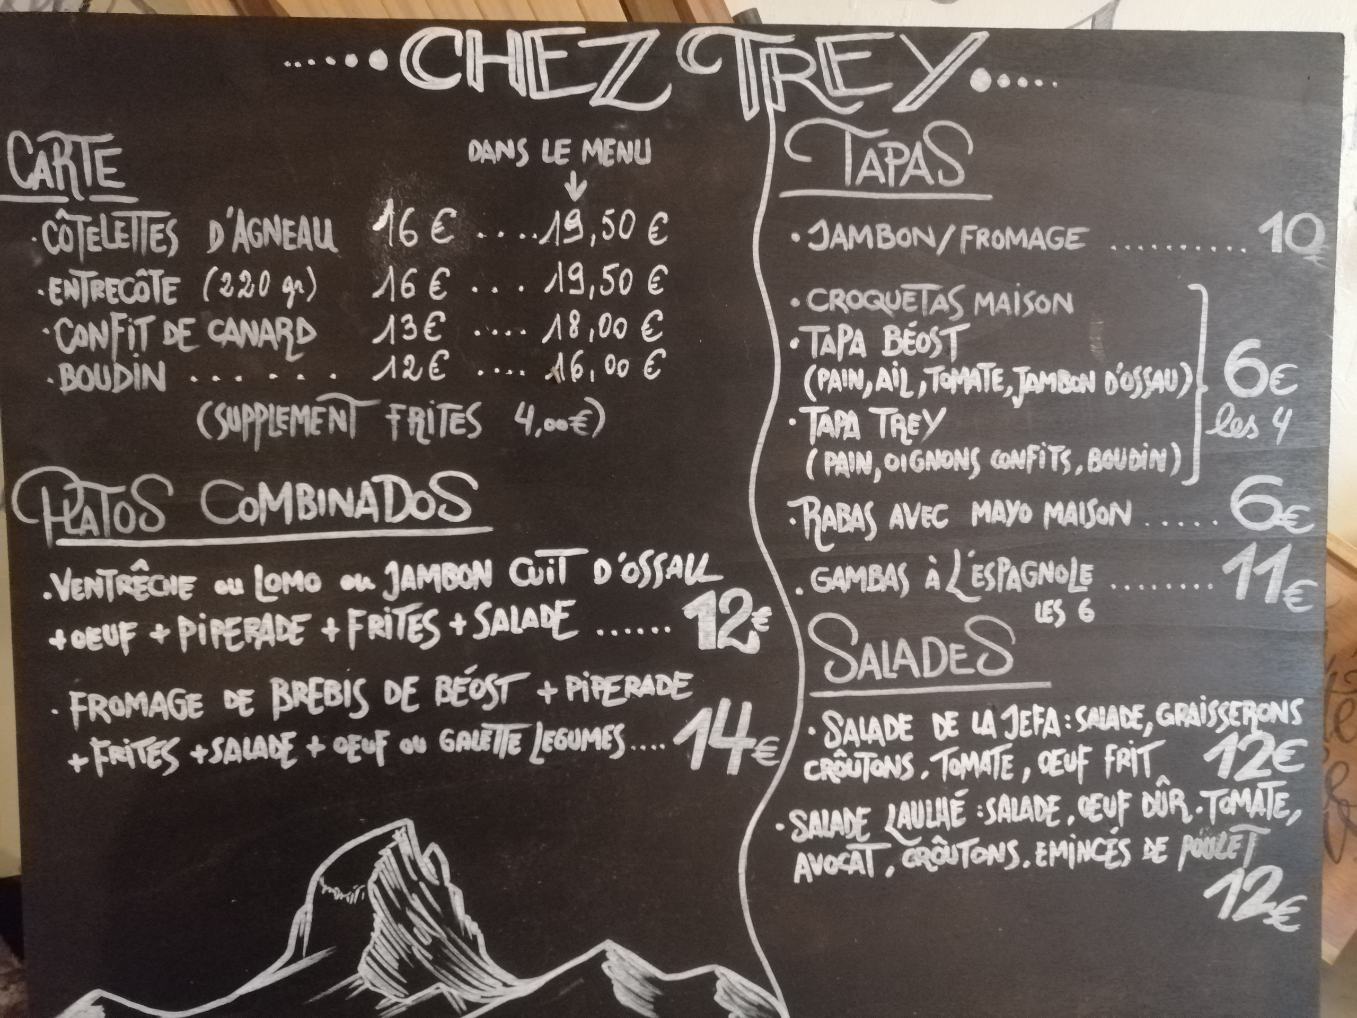 CHEZ TREY
CARTE
DANS LE MENU
CÔTELETTES D'AGNEAU 16 € .... 19,50 €
ENTRECÔTE (220 gr) 16 € .... 19,50 €
CONFIT DE CANARD 13 € .... 18,00 €
BOUDIN ....... 12 € .... 16,00 €
(SUPPLEMENT FRITES 4,00€)
PLATOS COMBINADOS
. VENTRÊCHE ou LOMO ou JAMBON CUIT D'OSSAU
+ OEUF + PIPERADE + FRITES + SALADE ...... 12€
. FROMAGE DE BREBIS DE BÉOST + PIPERADE
+ FRITES + SALADE + OEUF ou GALETTE LEGUMES.... 14€
TAPAS
. JAMBON/FROMAGE .......... 10
. CROQUETAS MAISON
. TAPA BÉOST
(PAIN, AIL, TOMATE, JAMBON D'OSSAU)
. TAPA TREY
(PAIN, OIGNONS CONFITS, BOUDIN)
6€
les 4
. RABAS AVEC MAYO MAISON ..... 6€
. GAMBAS à L'ESPAGNOLE ........ 11€
LES 6
SALADES
. SALADE DE LA JEFA : SALADE, GRAISSERONS
CRÔUTONS, TOMATE, OEUF FRIT 12€
. SALADE LAULHÉ : SALADE, OEUF DÛR, TOMATE,
AVOCAT, CRÔUTONS, EMINCÉS DE POULET
12€